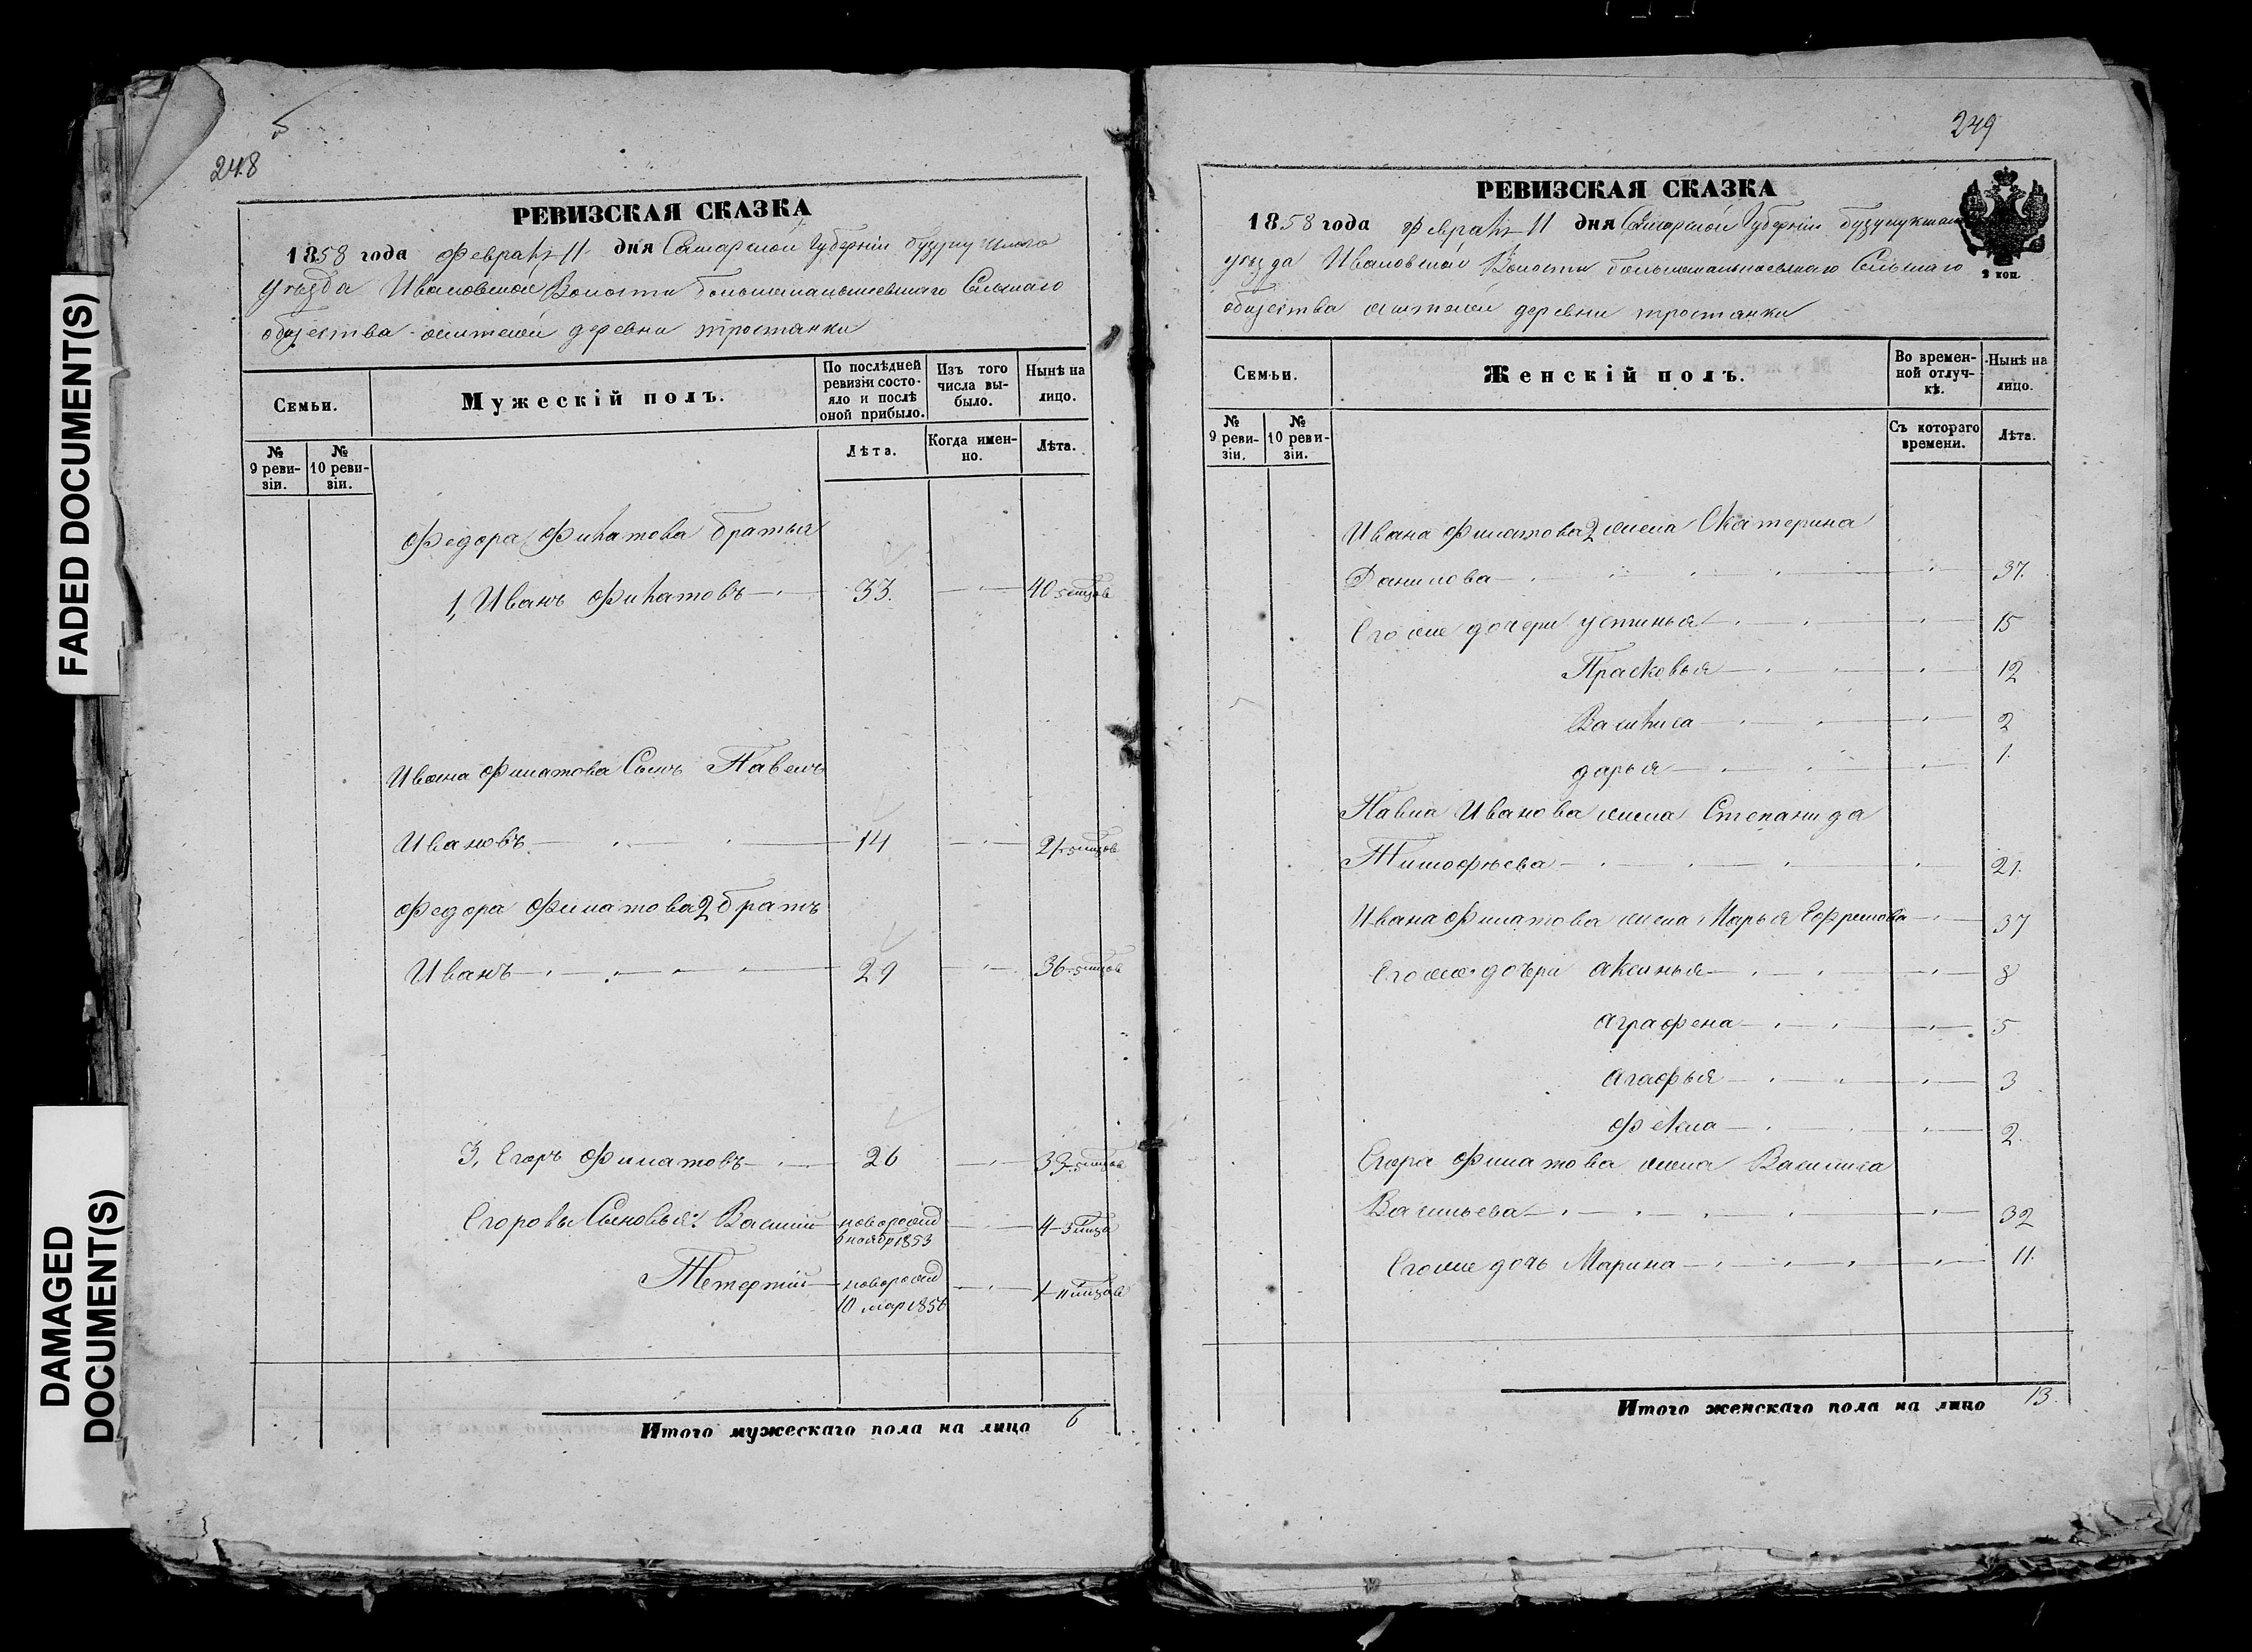 FADED DOCUMENT(S)
DAMAGED
DOCUMENT(S)
5
248
РЕВИЗСКАЯ СКАЗКА
1858 года Февраля 11 дня Самарской Губернiи бузулукскаго
уѣзда Ивановской Волости Сельскаго
общества жителей деревни тростянки
Семьи.
Мужескiй полъ.
По послѣдней
ревизiи состо-
яло и послѣ
оной прибыло.
Изъ того
числа вы-
было.
Нынѣ на
лицо.
№
9 реви-
зiи.
№
10 реви-
зiи.
Лѣта.
Когда имен-
но.
Лѣта.
Федора Филатова братья
1, Иванъ Филатовъ 33. 40 5 мцов
Ивана Филатова Сынъ Павелъ
Ивановъ 14 21 5 мцов
Федора Филатова 2 братъ
Иванъ 29 36 5 мцов
3, Егоръ Филатовъ 26 33 5 мцов
Егоровы Сыновья: Василiй новорожд 4 3 мца
6 ноябр 1853
новорожд 1 11 мцов
10 мар 1856
Итого мужескаго пола на лицо 6
249
РЕВИЗСКАЯ СКАЗКА
1858 года Февраля 11 дня Самарской Губернiи бузулукскаго
уѣзда Ивановской Волости Сельскаго
2 коп.
общества жителей деревни тростянки
Семьи.
Женскiй полъ.
Во времен-
ной отлуч-
кѣ.
Нынѣ на
лицо.
№
9 реви-
зiи.
№
10 реви-
зiи.
Съ котораго
времени.
Лѣта.
Ивана Филатова 2 жена Екатерина
Данилова 37.
Его же дочери устинья 15
Прасковья 12
Василиса 2
дарья 1.
Павла Иванова жена Степанида
Тимофѣева 21.
Ивана Филатова жена Марья Ефремова 37
Его же дочери аксинья 8
аграфена 5
агафья 3
Фекла 2.
Егора Филатова жена Василиса
Васильева 32
Его же дочь Марина 11.
Итого женскаго пола на лицо 13.